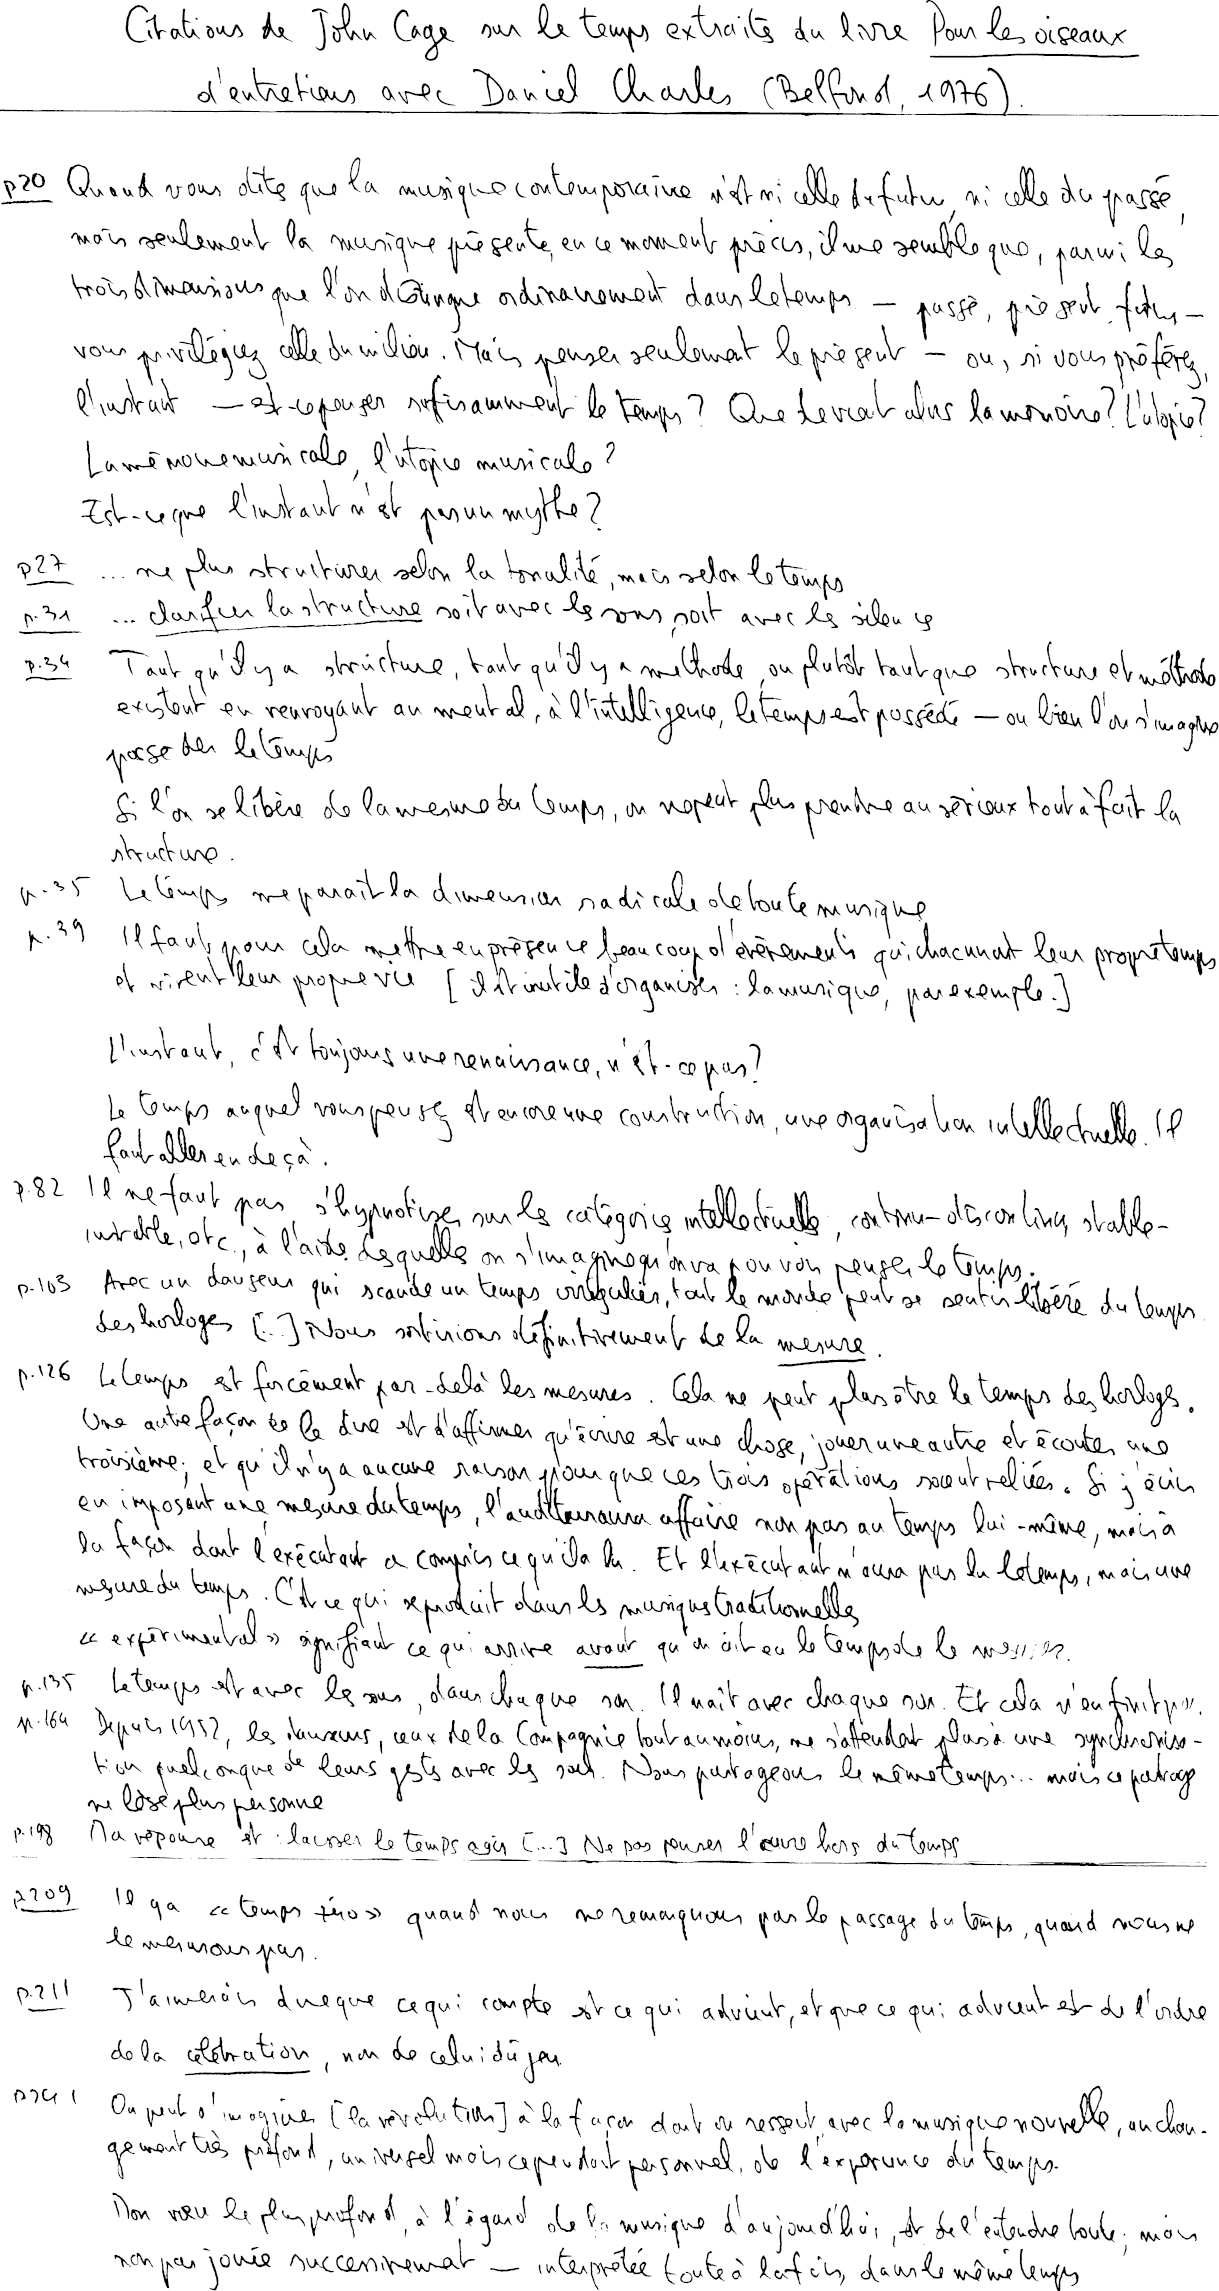 Citations de John Cage sur le temps extraits du livre Pour les oiseaux
d'entretiens avec Daniel Charles (Belfond, 1976).
p20 Quand vous dites que la musique contemporaine n'est ni celle du futur, ni celle du passé,
mais seulement la musique présente, en ce moment précis, il me semble que, parmi les
trois dimensions que l'on distingue ordinairement dans le temps — passé, présent, futur —
vous privilégiez celle du milieu. Mais penser seulement le présent — ou, si vous préférez,
l'instant — est-ce penser suffisamment le temps? Que devient alors la mémoire? L'utopie?
La mémoire musicale, l'utopie musicale?
Est-ce que l'instant n'est pas un mythe?
p27 ... ne plus structurer selon la tonalité, mais selon le temps
p.31 ... clarifier la structure soit avec les sons, soit avec les silences
p.34 Tant qu'il y a structure, tant qu'il y a méthode, ou plutôt tant que structure et méthode
existent en renvoyant au mental, à l'intelligence, le temps est possédé — ou bien l'on s'imagine
posséder le temps
Si l'on se libère de la mesure du temps, on ne peut plus prendre au sérieux tout à fait la
structure.
p.35 Le temps me paraît la dimension radicale de toute musique
p.39 Il faut pour cela mettre en présence beaucoup d'évènements qui chacun ont leur propre temps
et vivent leur propre vie [il est inutile d'organiser : la musique, par exemple.]
L'instant, c'est toujours une renaissance, n'est-ce pas?
Le temps auquel vous pensez est encore une construction, une organisation intellectuelle. Il
faut aller en deçà.
p.82 Il ne faut pas s'hypnotiser sur les catégories intellectuelles, continu-discontinu, stable-
instable, etc., à l'aide desquelles on s'imagine qu'on va pouvoir penser le temps.
p.103 Avec un danseur qui scande un temps irrégulier, tout le monde peut se sentir libéré du temps
des horloges [...] Nous sortirions définitivement de la mesure.
p.126 Le temps est forcément par-delà les mesures. Cela ne peut plus être le temps des horloges.
Une autre façon de le dire est d'affirmer qu'écrire est une chose, jouer une autre et écouter une
troisième; et qu'il n'y a aucune raison pour que ces trois opérations soient reliées. Si j'écris
en imposant une mesure du temps, l'auditeur aura affaire non pas au temps lui-même, mais à
la façon dont l'exécutant a compris ce qu'il a lu. Et l'exécutant n'aura pas lu le temps, mais une
mesure du temps. C'est ce qui se produit dans les musiques traditionnelles
« expérimental » signifiant ce qui arrive avant qu'on ait eu le temps de le mesurer.
p.135 Le temps est avec les sons, dans chaque son. Il naît avec chaque son. Et cela n'en finit pas.
p.164 Depuis 1952, les danseurs, ceux de la Compagnie tout au moins, ne s'attendent plus à une synchronisa-
tion quelconque de leurs gestes avec les sons. Nous partageons le même temps... mais ce partage
ne lèse plus personne
p.198 Ma réponse est : laisser le temps agir [...] Ne pas penser l'œuvre hors du temps
p209 Il y a « temps zéro » quand nous ne remarquons pas le passage du temps, quand nous ne
le mesurons pas.
p.211 J'aimerais dire que ce qui compte est ce qui advient, et que ce qui advient est de l'ordre
de la célébration, non de celui du jeu
p241 On peut s'imaginer [la révolution] à la façon dont on ressent, avec la musique nouvelle, un chan-
gement très profond, universel mais cependant personnel, de l'expérience du temps.
Mon vœu le plus profond, à l'égard de la musique d'aujourd'hui, est de l'entendre toute; mais
non pas jouée successivement — interprétée toute à la fois, dans le même temps